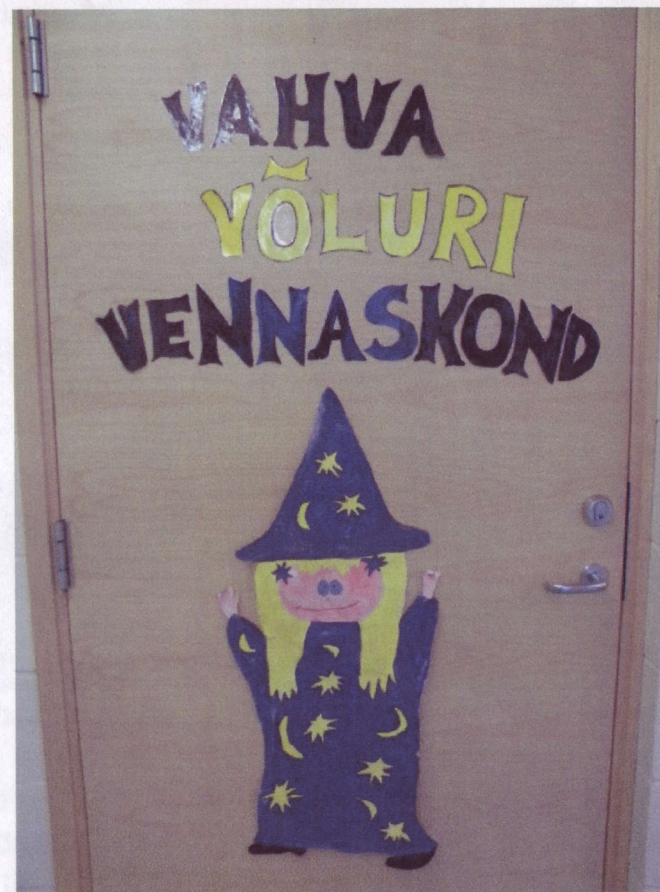 VAHVA
VÕLURI
VENNASKOND